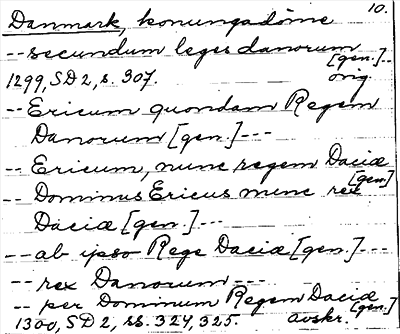 10.
Danmark, konungadöme
-- secundum leges danorum
[gen.] --
1299, SD 2, s. 307. orig
-- Ericum quondam Regem
Danorum [gen.] ---
-- Ericum, nunc regem Daciæ
[gen.]
-- Dominus Ericus nunc rex
Daciæ [gen.] ---
-- ab ipso Rege Daciæ [gen.] ---
-- rex Danorum ---
-- per Dominum Regem Daciæ
[gen.] --
1300, SD 2, ss. 324, 325. avskr.